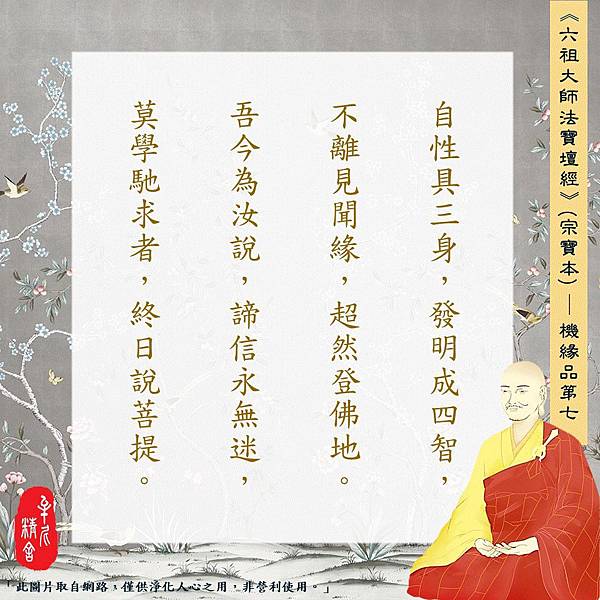 《六祖大師法寶壇經》(宗寶本)—機緣品第七
自性具三身，發明成四智，
不離見聞緣，超然登佛地。
吾今為汝說，諦信永無迷，
莫學馳求者，終日說菩提。
精舍
「此圖片取自網路，僅供淨化人心之用，非營利使用。」